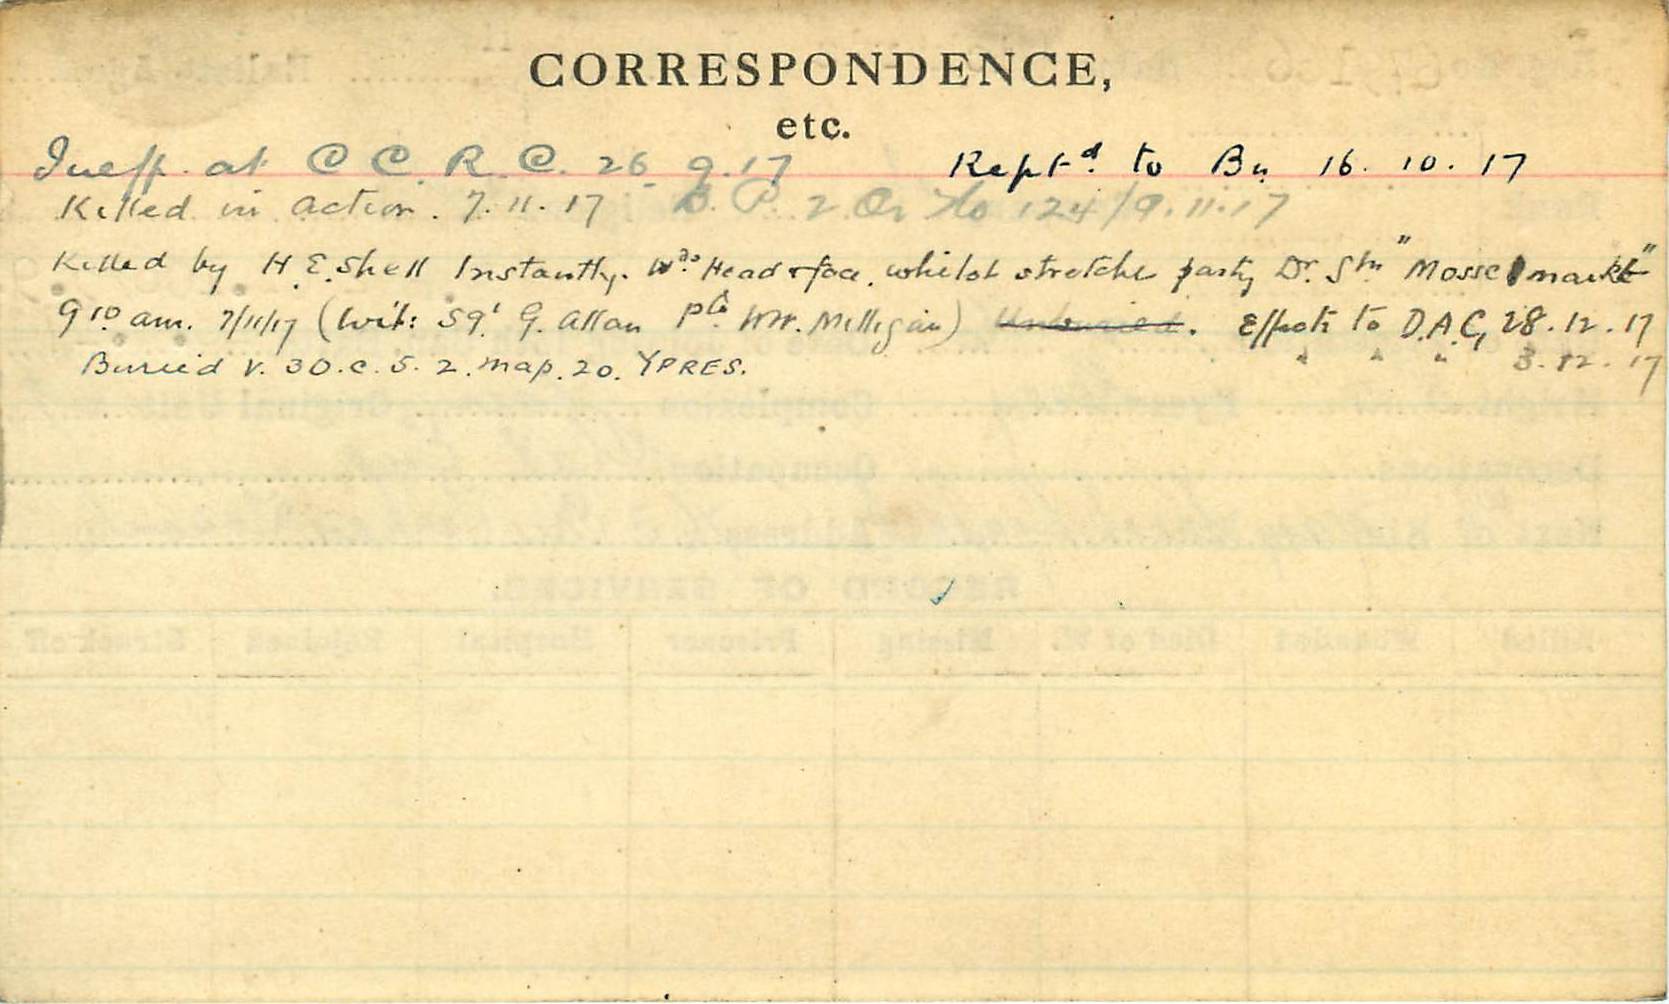 CORRESPONDENCE,
etc.
Ineff. at C C. R. C. 26. 9.17 Rept.d to Bn 16. 10. 17
Killed in action. 7.11.17 B. P. 2 Or No 124/9.11.17
Killed by H.E. Shell Instantly. Wds Head & face. whilst stretcher party Dr. Stn "Mosselmarkt"
9 10 am. 7/11/17 (Wit: Sgt G. Allan Pte Wm. Milligan) Unburied. Effects to D.A.G, 28.12.17
Buried V. 30. c. 5. 2. map. 20. YPRES. " " " 3. 12. 17